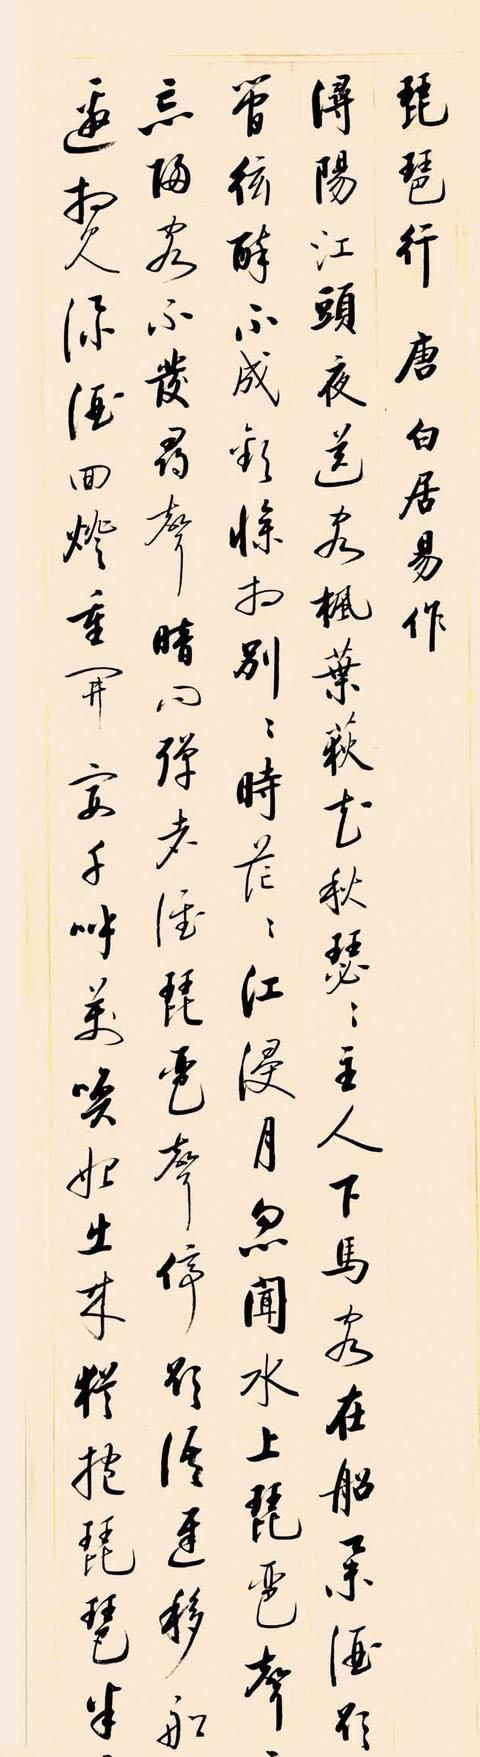 琵琶行 唐 白居易作
潯陽江頭夜送客楓葉荻花秋瑟〻主人下馬客在船舉酒欲
管弦醉不成歡慘相別〻時茫〻江浸月忽聞水上琵琶聲
忘歸客不發尋聲暗問彈者誰琵琶聲停欲語遲移船
邀相見添酒回燈重開宴千呼萬喚始出來猶抱琵琶半